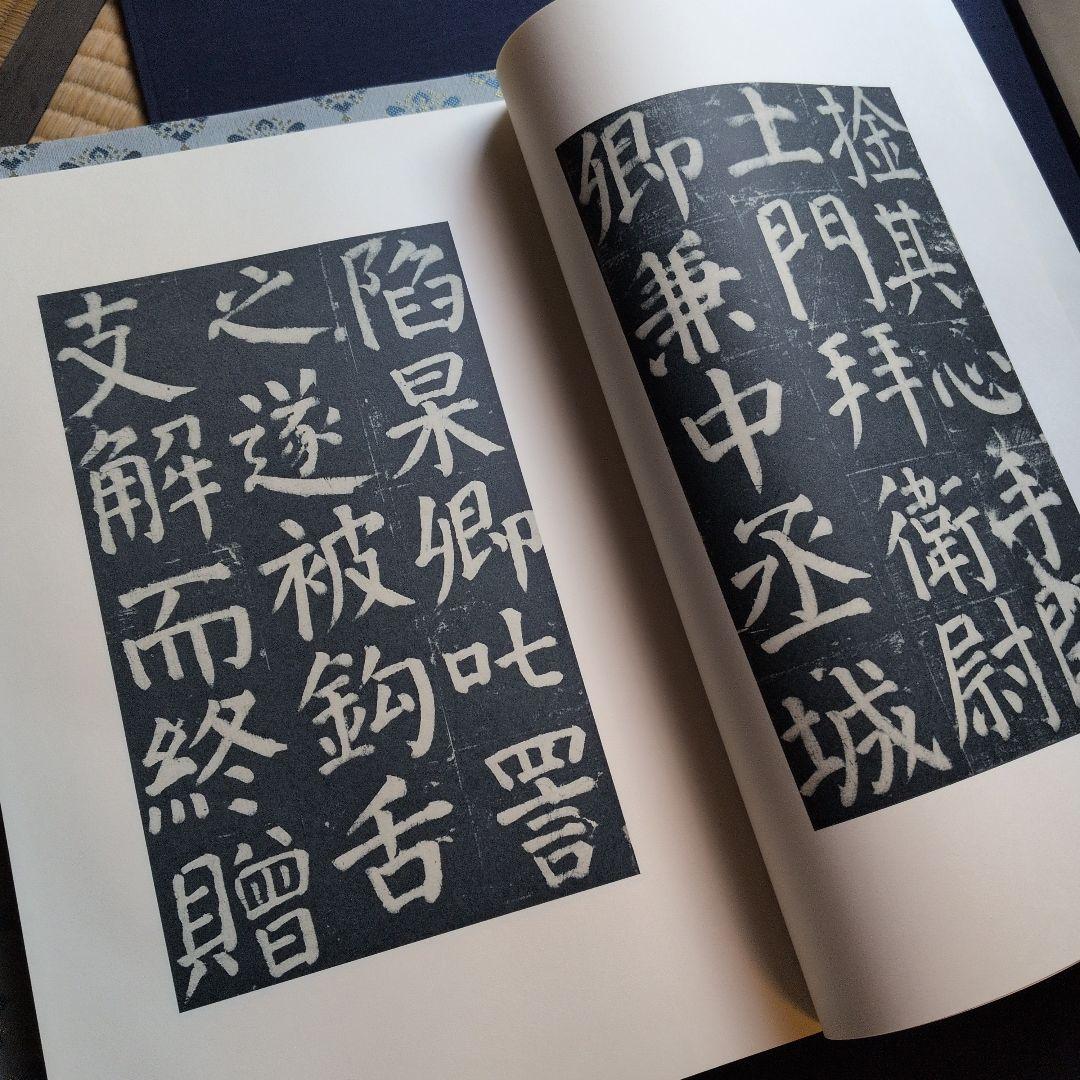 捦其心手
土門拜衛尉
卿兼中丞城
陷杲卿叱詈
之遂被鈎舌
支解而終贈